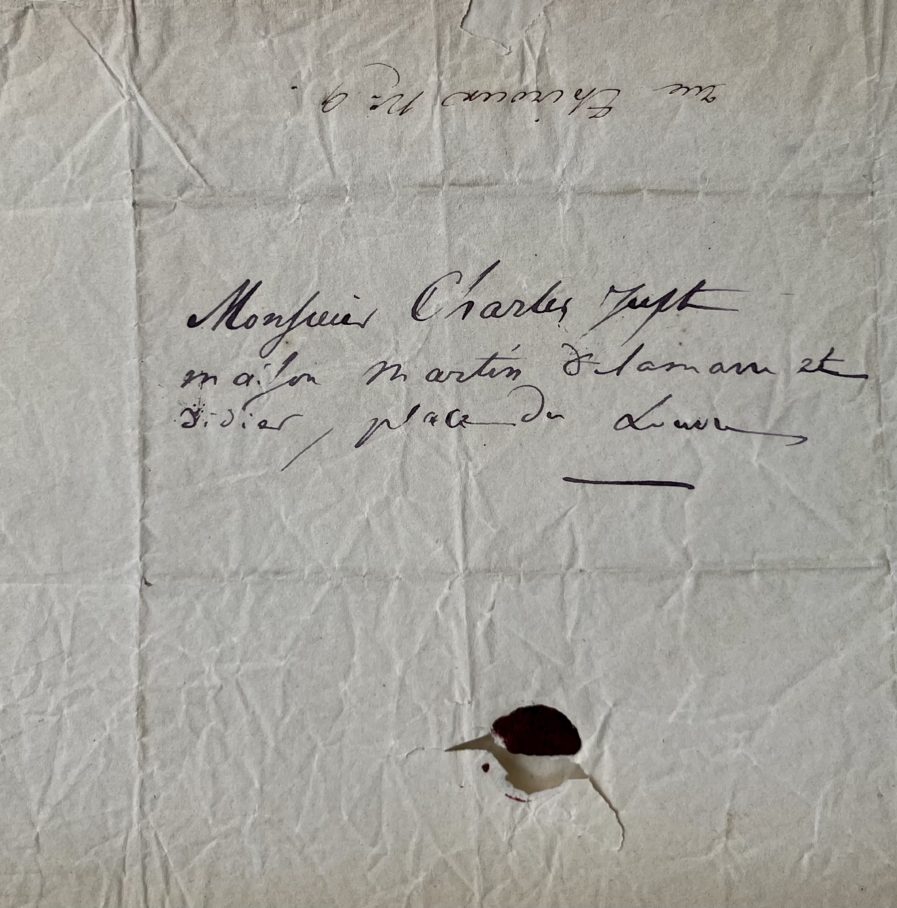 rue Thiroux N° 9.
Monsieur Charles
maison Martin Delamarre et
Didier, place du Louvre